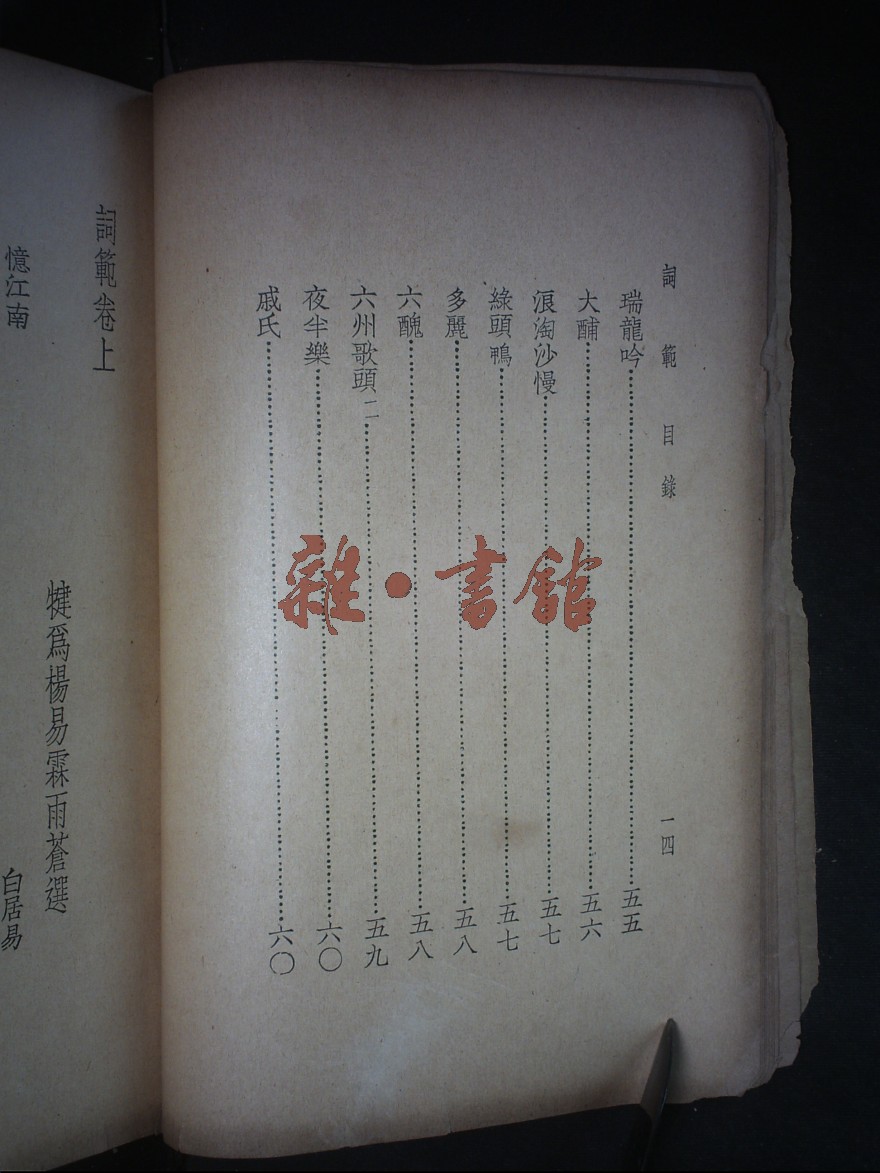 詞範目錄 一四
瑞龍吟 五五
大酺 五六
浪淘沙慢 五七
綠頭鴨 五七
多麗 五八
六醜 五八
六州歌頭二 五九
夜半樂 六〇
戚氏 六〇
詞範卷上
犍爲楊易霖雨蒼選
憶江南 白居易
雜·書館